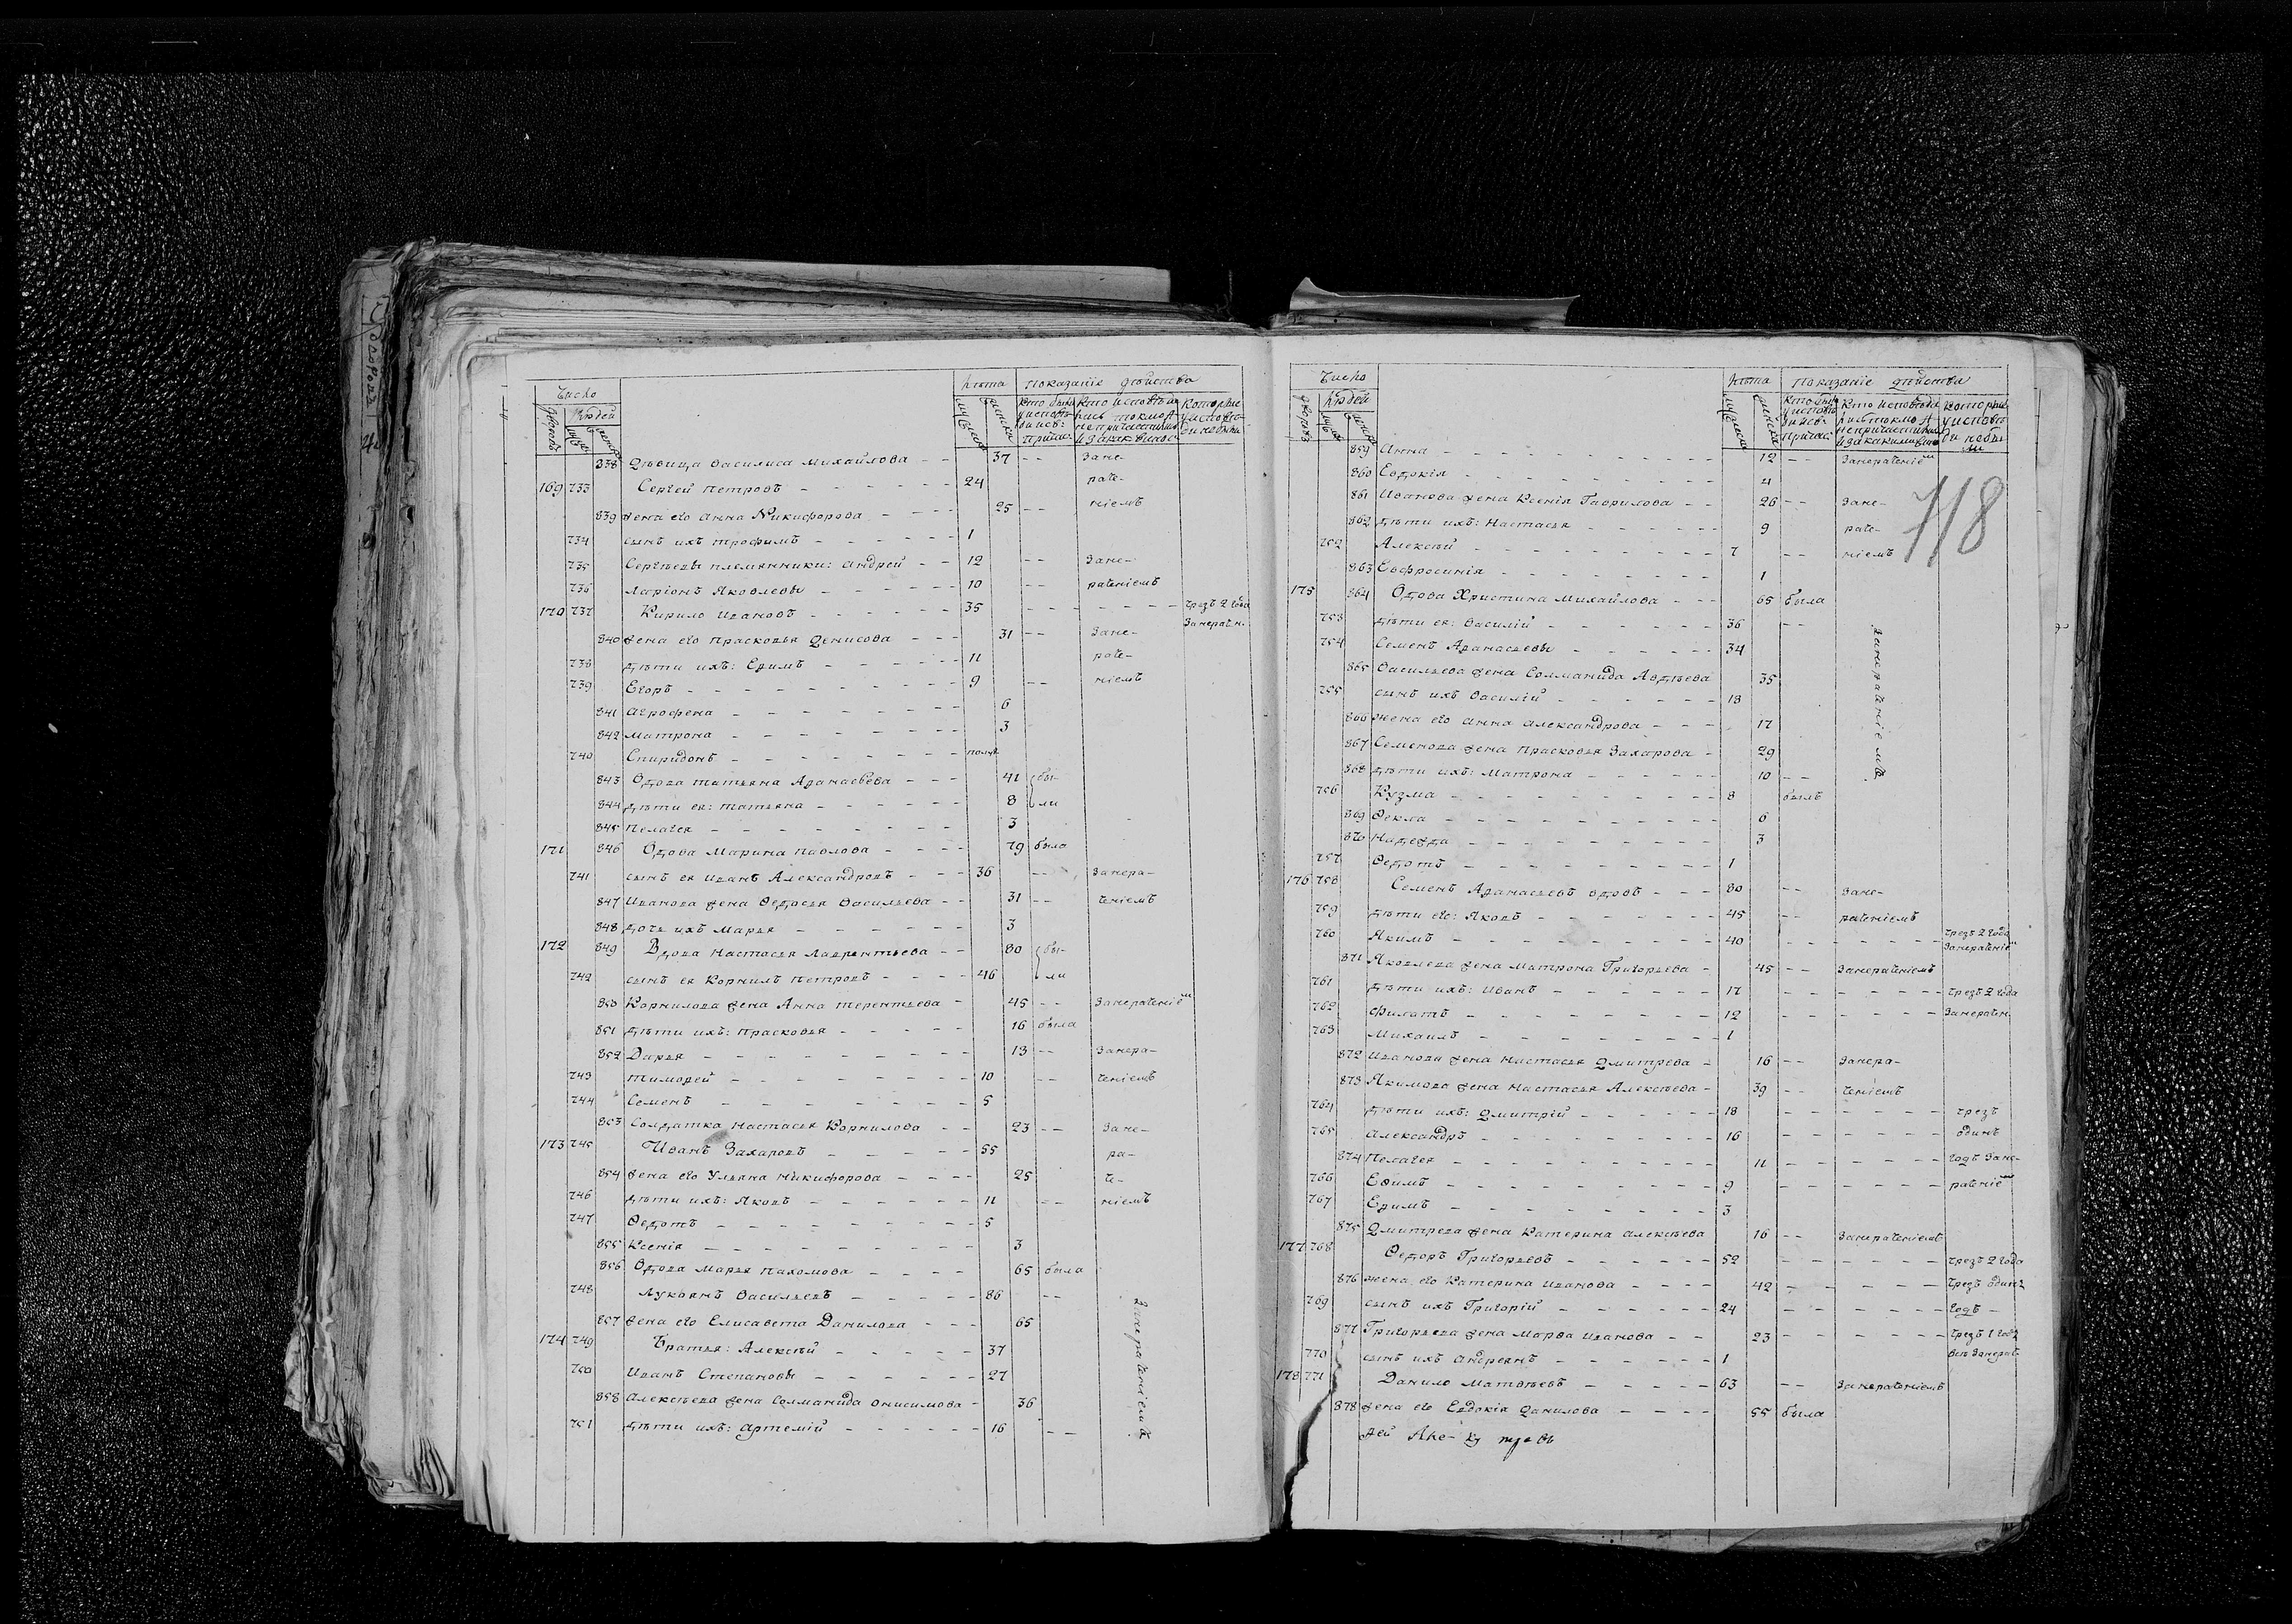 Число | Лѣта | Показанiе дѣйства
дворовъ | Людей
муж | женск | мужеска | женска | кто были у исповѣди и св: причас: | кто исповѣдались токмо А непричастились и за какъ виною | которые у исповѣди небыли
838 Дѣвица Василиса Михайлова – – 37 – – Зане-
169 733 Сергей Петровъ – – – – – – 24 раче-
839 жена его Анна Никифорова – – – – 25 – – нiемъ
734 сынъ ихъ Трофимъ – – – – – – 1
735 Сергѣевы племянники: Андрей – – 12 – – Зане-
736 Ларiонъ Яковлевы – – – – – 10 – – раченiемъ
170 737 Кирило Ивановъ – – – – – – 35 – – – – – – – чрезъ 2 года
Занерачен.
840 жена его Прасковья Денисова – – – 31 – – Зане-
738 дѣти ихъ: Ефимъ – – – – – – 11 раче-
739 Егоръ – – – – – – – – – – 9 – – нiемъ
841 Агрофена – – – – – – – – 6
842 Матрона – – – – – – – – 3
740 Спиридонъ – – – – – – – – полу:
843 Вдова Татьяна Афанасьева – – – 41 бы-
844 дѣти ея: Татьяна – – – – – 8 ли
845 Пелагея – – – – – – – – 3
171 846 Вдова Марина Павлова – – – – 79 была
741 сынъ ея Иванъ Александровъ – – – 36 – – Занера-
847 Иванова жена Федосья Васильева – – 31 – – ченiемъ
848 дочь ихъ Марья – – – – – – 3
172 849 Вдова Настасья Лаврентьева – – 80 бы-
742 сынъ ея Корнилъ Петровъ – – – – 46 ли
850 Корнилова жена Анна Терентьева – 45 – – Занераченiемъ
851 дѣти ихъ: Прасковья – – – – – 16 была
852 Дарья – – – – – – – – – 13 – – Занера-
743 Тимофей – – – – – – – – – 10 – – ченiемъ
744 Семенъ – – – – – – – – – 5
853 Солдатка Настасья Корнилова – – 23 – – Зане-
173 745 Иванъ Захаровъ – – – – – 55 ра-
854 жена его Ульяна Никифорова – – – – 25 че-
746 дѣти ихъ: Яковъ – – – – – – – 11 – – нiемъ
747 Федотъ – – – – – – – – – 5
855 Ксенiя – – – – – – – – – 3
856 Вдова Марья Пахомова – – – – 65 была
748 Лукоянъ Васильевъ – – – – – 86 – –
857 жена его Елисавета Данилова – – – 65
174 749 Братья: Алексѣй – – – – – 37
750 Иванъ Степановы – – – – – – 27
858 Алексѣева жена Соломанида Онисимова – 36
751 дѣти ихъ: Артемiй – – – – – – 16 – –
Занераченiемъ
Число | Лѣта | Показанiе дѣйства
дворовъ | Людей
муж | женск | мужеска | женска | кто были у исповѣди и св: причас: | кто исповѣдались токмо А непричастились и за какимивино | которые у исповѣди небыли
859 Анна – – – – – – – – – – – 12 – – Занераченiемъ
860 Евдокiя – – – – – – – – – – 4
718
861 Иванова жена Ксенiя Гаврилова – – 26 – – Зане-
862 дѣти ихъ: Настасья – – – – – – 9 раче-
752 Алексѣй – – – – – – – – – – 7 – – нiемъ
863 Евфросинiя – – – – – – – – 1
175 864 Вдова Христина Михайлова – – – 65 была
753 дѣти ея: Василiй – – – – – – 36 – –
754 Семенъ Афанасьевы – – – – – 34
865 Васильева жена Соломанида Авдѣева 35
755 сынъ ихъ Василiй – – – – – – 18
866 жена его Анна Александрова – – – 17
867 Семенова жена Прасковья Захарова – 29
868 дѣти ихъ: Матрона – – – – – – 10 – –
Занераченiемъ
756 Кузма – – – – – – – – – – – 8 былъ
869 Фекла – – – – – – – – – – 6
870 Надежда – – – – – – – – – 3
757 Федотъ – – – – – – – – – – 1
176 758 Семенъ Афанасьевъ вдовъ – – – 80 – – Зане-
759 дѣти его: Яковъ – – – – – – – 45 – – раченiемъ
760 Якимъ – – – – – – – – – – 40 – – – – – – – чрезъ 2 года
Занераченiемъ
871 Яковлева жена Матрона Григорьева – 45 – – Занераченiемъ
761 дѣти ихъ: Иванъ – – – – – – – 17 – – – – – – чрезъ 2 года
762 Филатъ – – – – – – – – – – 12 – – – – – – Занерачен.
763 Михаилъ – – – – – – – – – – 1
872 Иванова жена Настасья Дмитрева – 16 – – Занера-
873 Якимова жена Настасья Алексѣева – 39 – – ченiемъ
764 дѣти ихъ: Дмитрiй – – – – – – 18 – – – – – – чрезъ
765 Александръ – – – – – – – – – 16 – – – – – – одинъ
874 Пелагея – – – – – – – – – – 11 – – – – – годъ Зане-
766 Ефимъ – – – – – – – – – – 9 – – – – – – раченiемъ
767 Ефимъ – – – – – – – – – – 3
875 Дмитрева жена Катерина Алексѣева 16 – – Занераченiемъ
177 768 Федоръ Григорьевъ – – – – – – 52 – – – – – – чрезъ 2 года
876 жена его Катерина Иванова – – – – 42 – – – – – – чрезъ одинъ
769 сынъ ихъ Григорiй – – – – – – 24 – – – – – – годъ –
877 Григорьева жена Марфа Иванова – – 23 – – – – – – чрезъ 1 годъ
770 сынъ ихъ Андреянъ – – – – – – 1 всѣ Занерач.
178 771 Данило Матвѣевъ – – – – – 63 – – Занераченiемъ
878 жена его Евдокiя Данилова – – – – 55 была